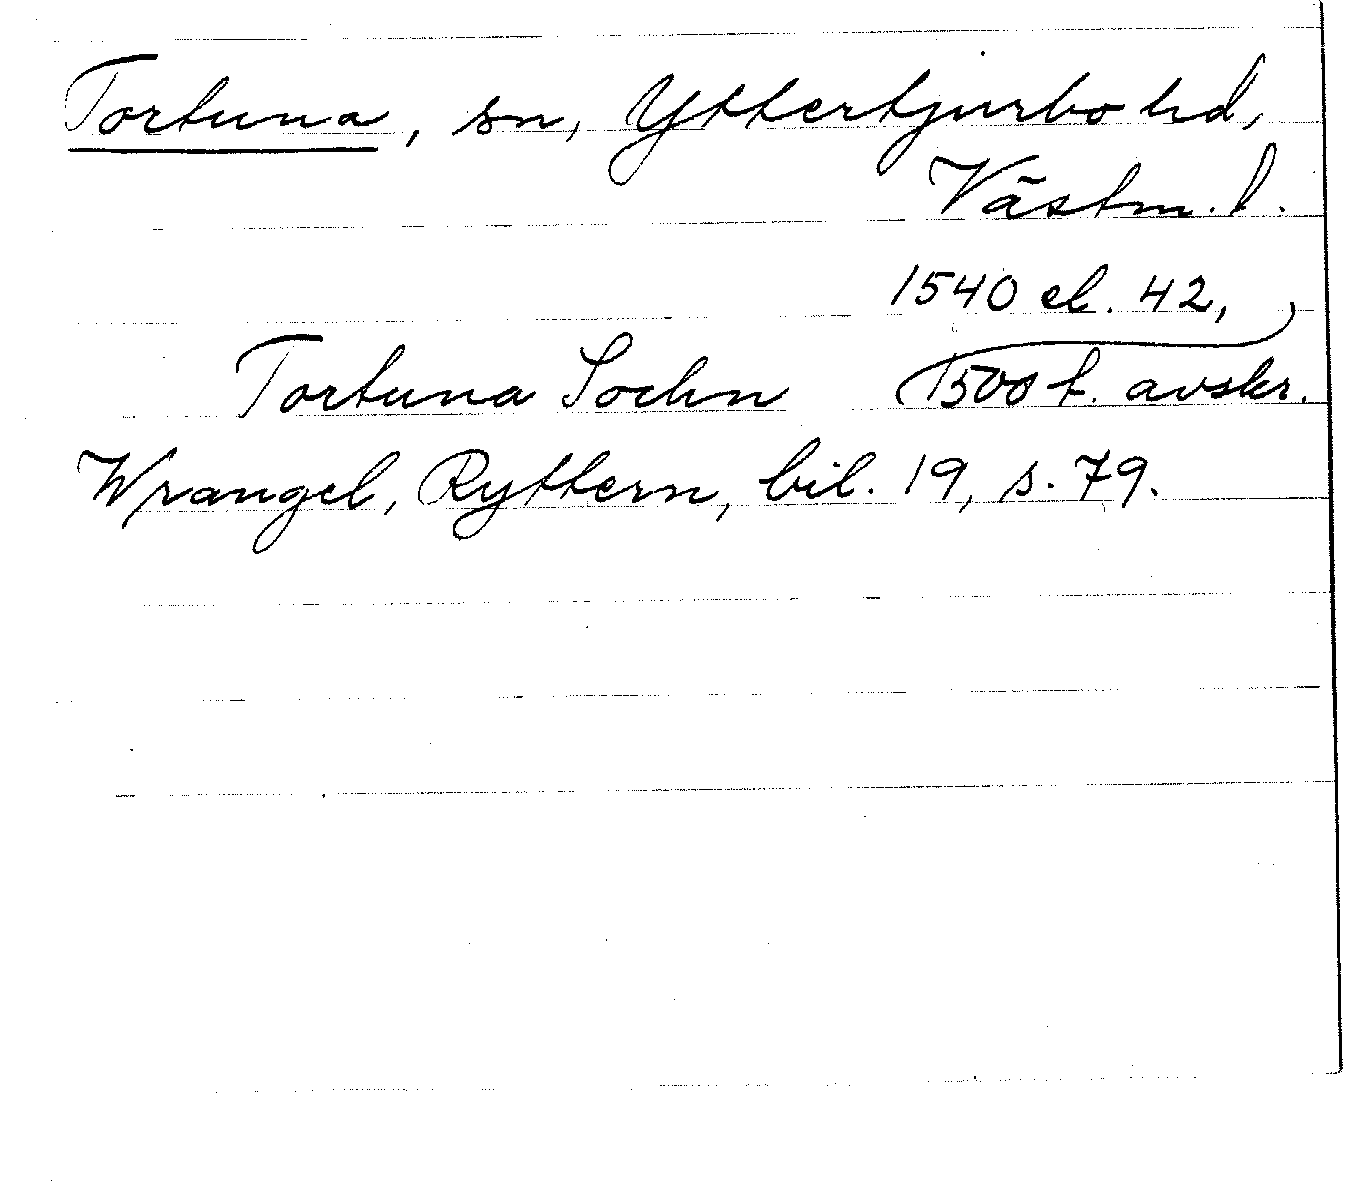 Tortuna, sn, Yttertjurbo hd,
Västm. l.
1540 el. 42,
Tortuna Sochn 1500 t. avskr.
Wrangel, Ryttern, bil. 19, s. 79.